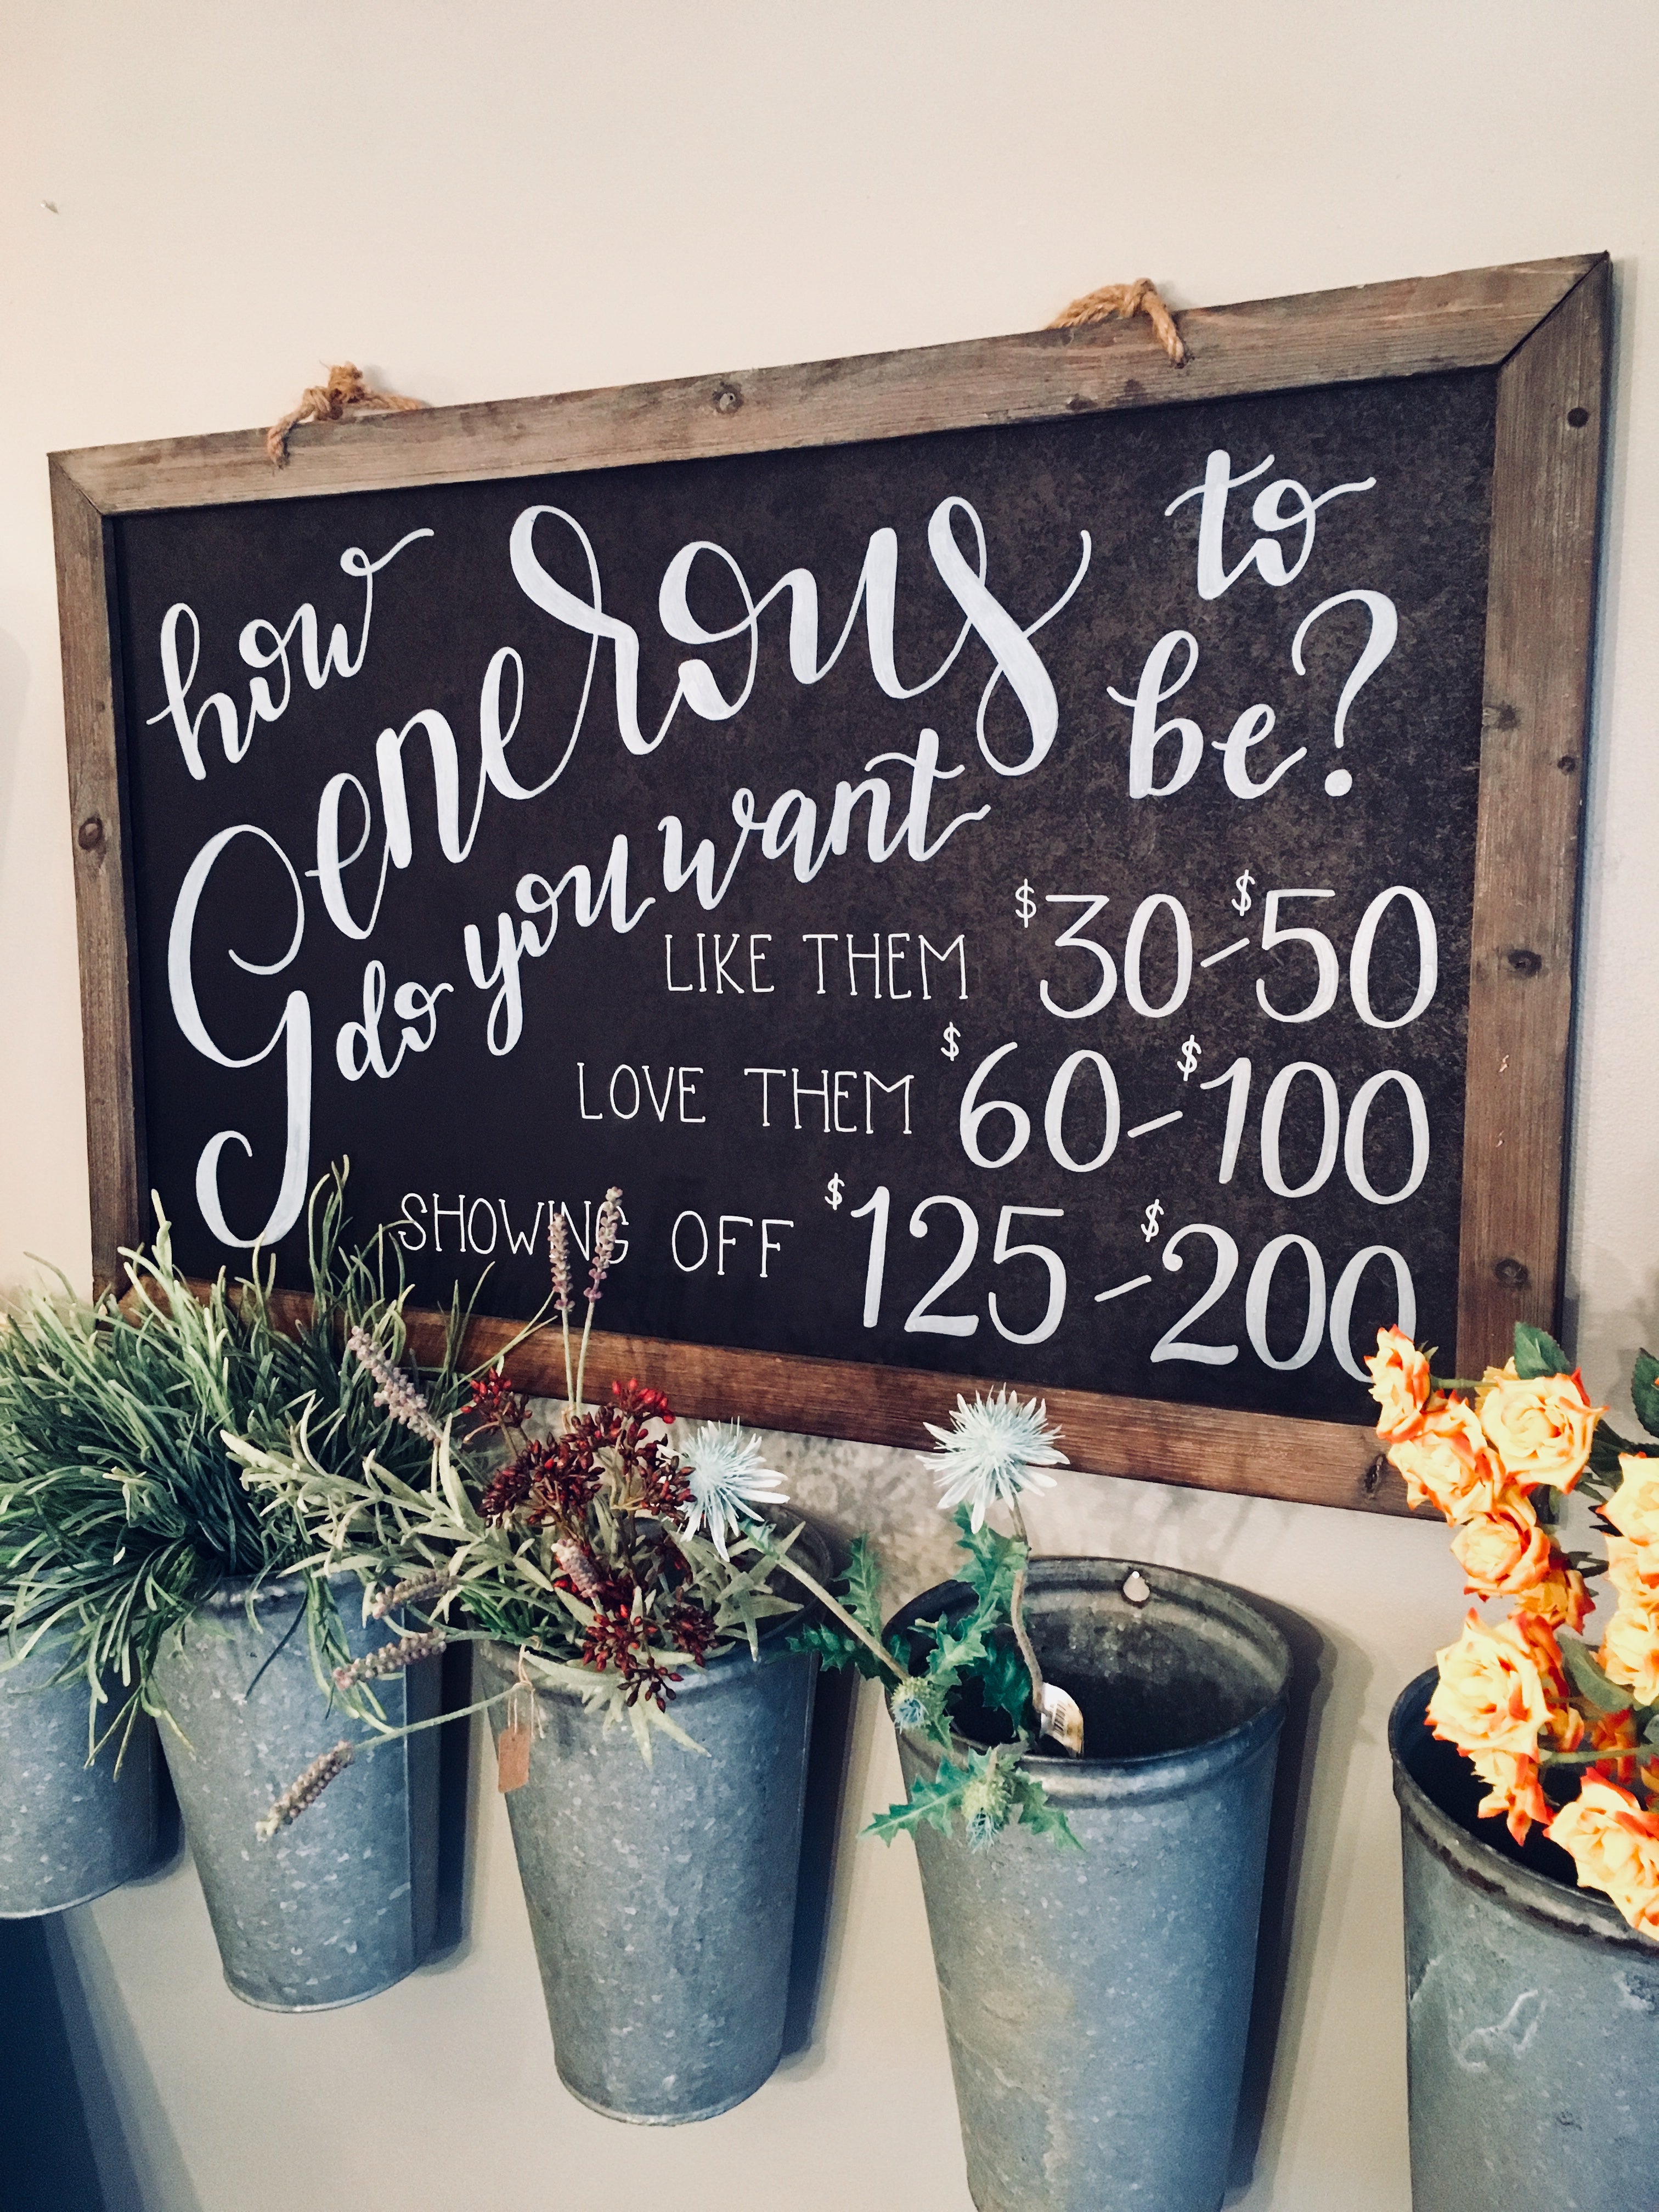 how
Generous to
do you want be?
LIKE THEM $30-$50
LOVE THEM $60-$100
SHOWING OFF $125-$200